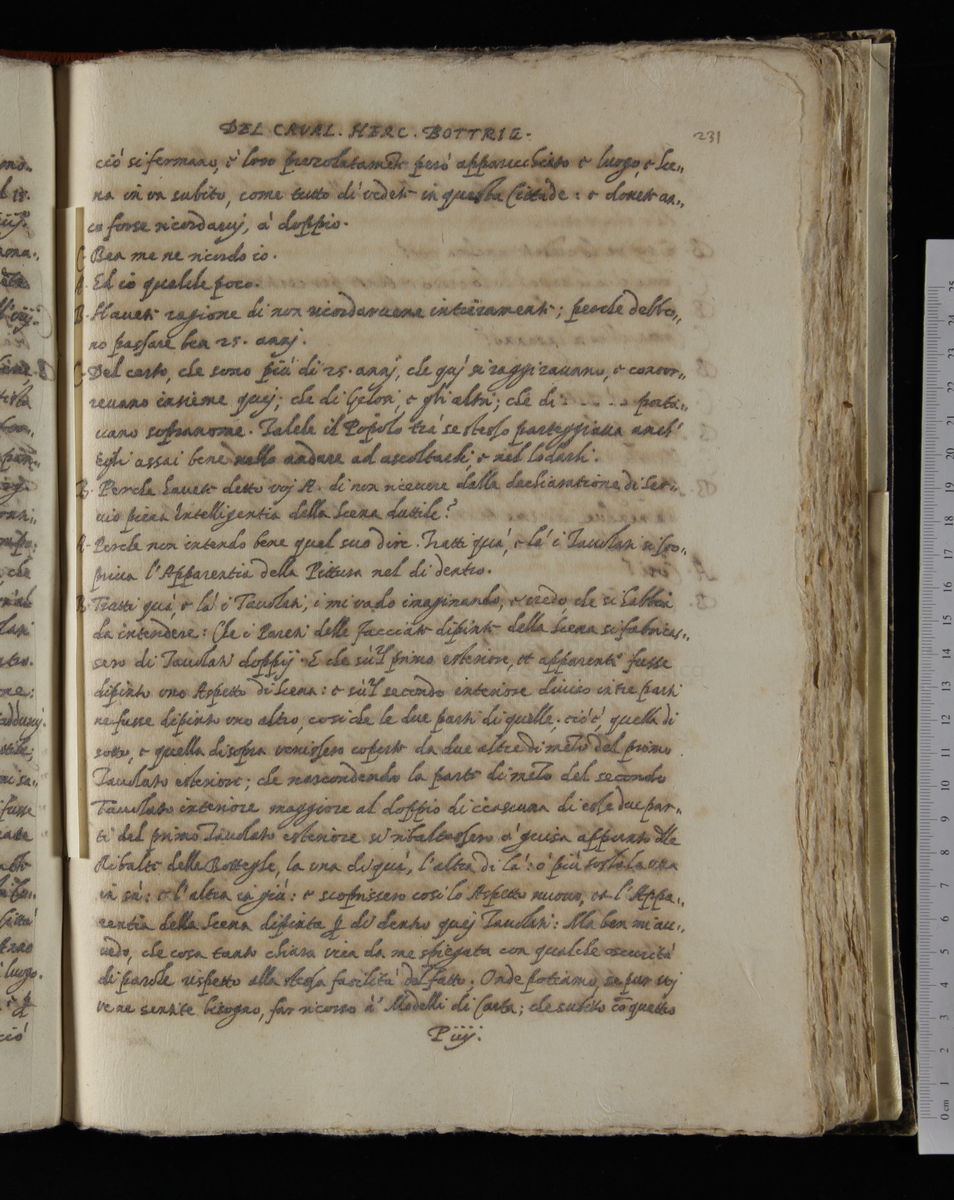 DEL CAVAL. HERC. BOTTRIG.
231
ciò si fermano, è loro però apparecchiato e luogo, e Sce„
na in un subito, come tutto dì vedete in questa Cittade: e dovete an„
co forse ricordarvj, à doppio.
C. Ben me ne ricordo io.
A. Ed io qualche poco.
B. Havete ragione di non ricordarvene intieramente; perche debbo„
no passare ben 25. annj.
C. Del certo, che sono più di 25. annj, che quj si raggiravano, e concor„
revano insieme quej; che di Gelosi, e gli altri; che di . . . . . porta„
vano sopranome. Talche il Popolo trà se stesso parteggiava anch'
Egli assai bene nello andare ad ascoltarli, e nel lodarli.
B. Perche havete detto voj A. di non ricevere dalla dechiaratione di Ser„
vio piena Intelligentia della Scena duttile?
A. Perche non intendo bene quel suo dire. Tratti quà, e là i Tavolati si sco„
priva l'Apparentia della Pittura nel di dentro.
B. Tratti quà, e là i Tavolati, i mi vado imaginando, e credo, che si habbia
da intendere: Che i Pareti delle Facciate dipinte della Scena si fabricas„
sero di Tavolati doppij. E che sù'l primo esteriore, et apparente fusse
dipinto uno Aspetto di Scena: e sù'l secondo interiore diviso in tre parti
ne fusse dipinto uno altro, così che le due parti di quelle, cio è, quella di
sotto, e quella di sopra venissero coperte da due altre di mezo del primo
Tavolato esteriore; che nascondendo la parte di mezo del secondo
Tavolato interiore maggiore al doppio di ciascuna di esse due par„
ti del primo Tavolato esteriore si ribaltassero à guisa appunto dlle
Ribalte delle Botteghe, la una di quà, l'altra di là: o più tosto la una
in sù: e l'altra in giù: e scoprissero così lo Aspetto nuovo, et l'Appa„
rentia della Scena dipinta p di dentro quej Tavolati: Ma ben mi au„
vedo, che cosa tanto chiara vien da me spiegata con qualche oscurità
di parole rispetto alla stessa facilità del fatto. Onde potiamo, se pur voj
ve ne sentite bisogno, far ricorso à Modelli di Carta; che subito cō questo
P iiij.